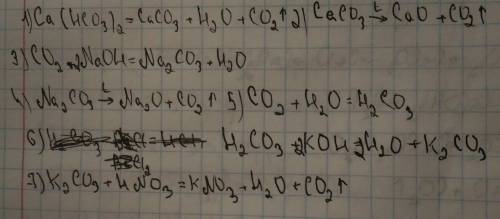 1) Ca(HCO3)2 = CaCO3 + H2O + CO2↑ 2) CaCO3 →t CaO + CO2↑
3) CO2 + 2NaOH = Na2CO3 + H2O
4) Na2CO3 →t Na2O + CO2↑ 5) CO2 + H2O = H2CO3
6) H2CO3 + 2KOH = 2H2O + K2CO3
7) K2CO3 + HNO3 = KNO3 + H2O + CO2↑